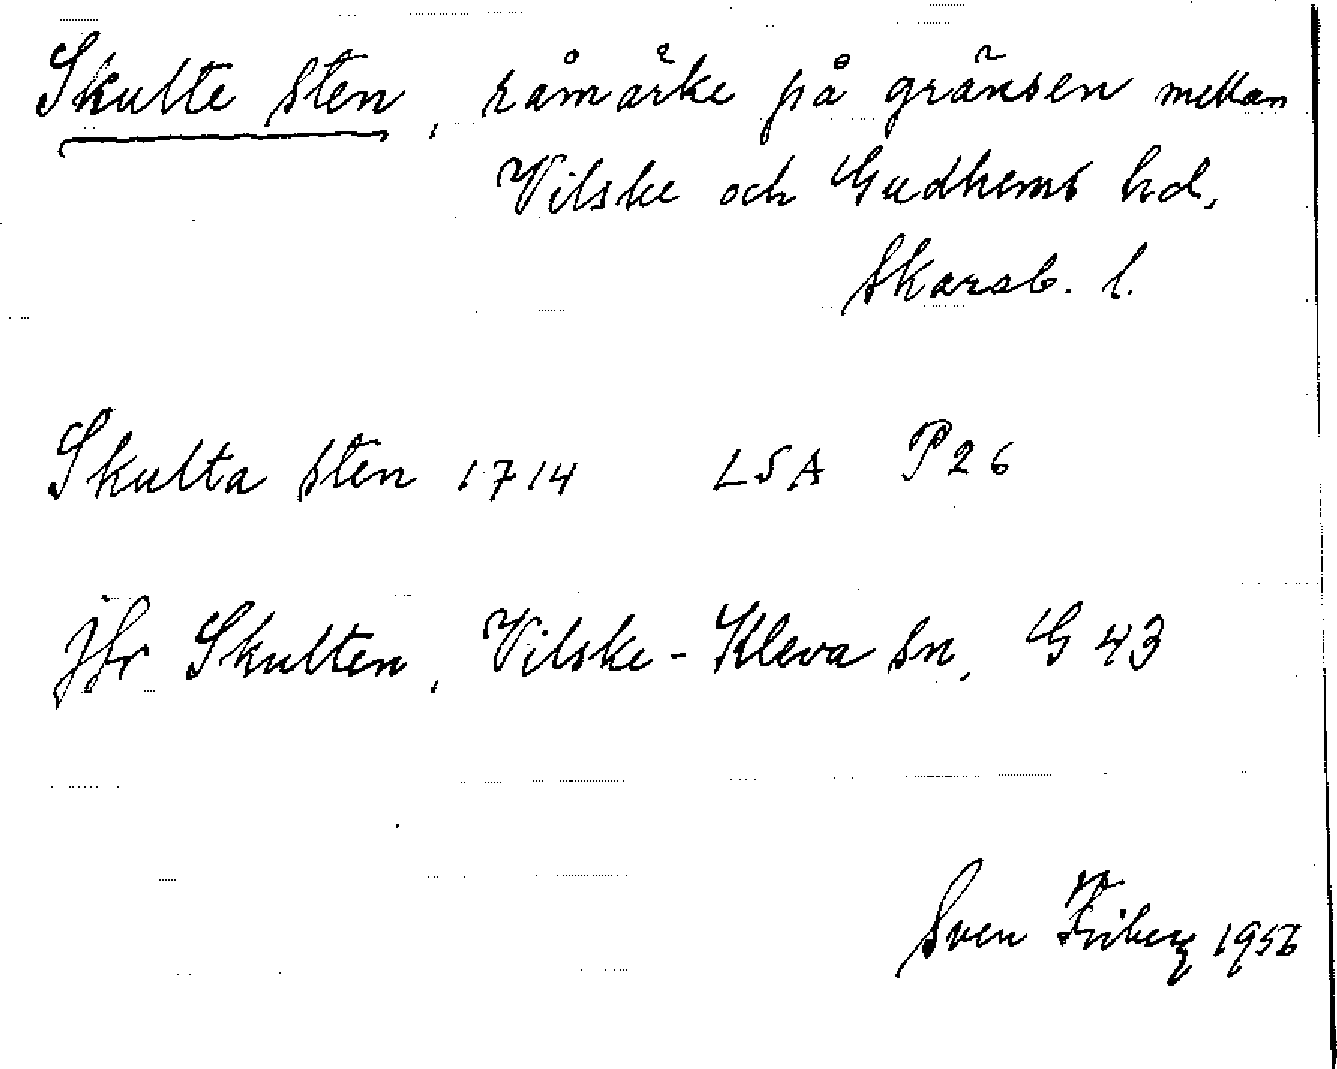 Skulte sten, råmärke på gränsen mellan
Vilske och Gudhems hd,
Skarab. l.
Skulta sten 1714 LSA P26
Jfr Skulten, Vilske-Kleva sn, G 43
Sven Friberg 1956